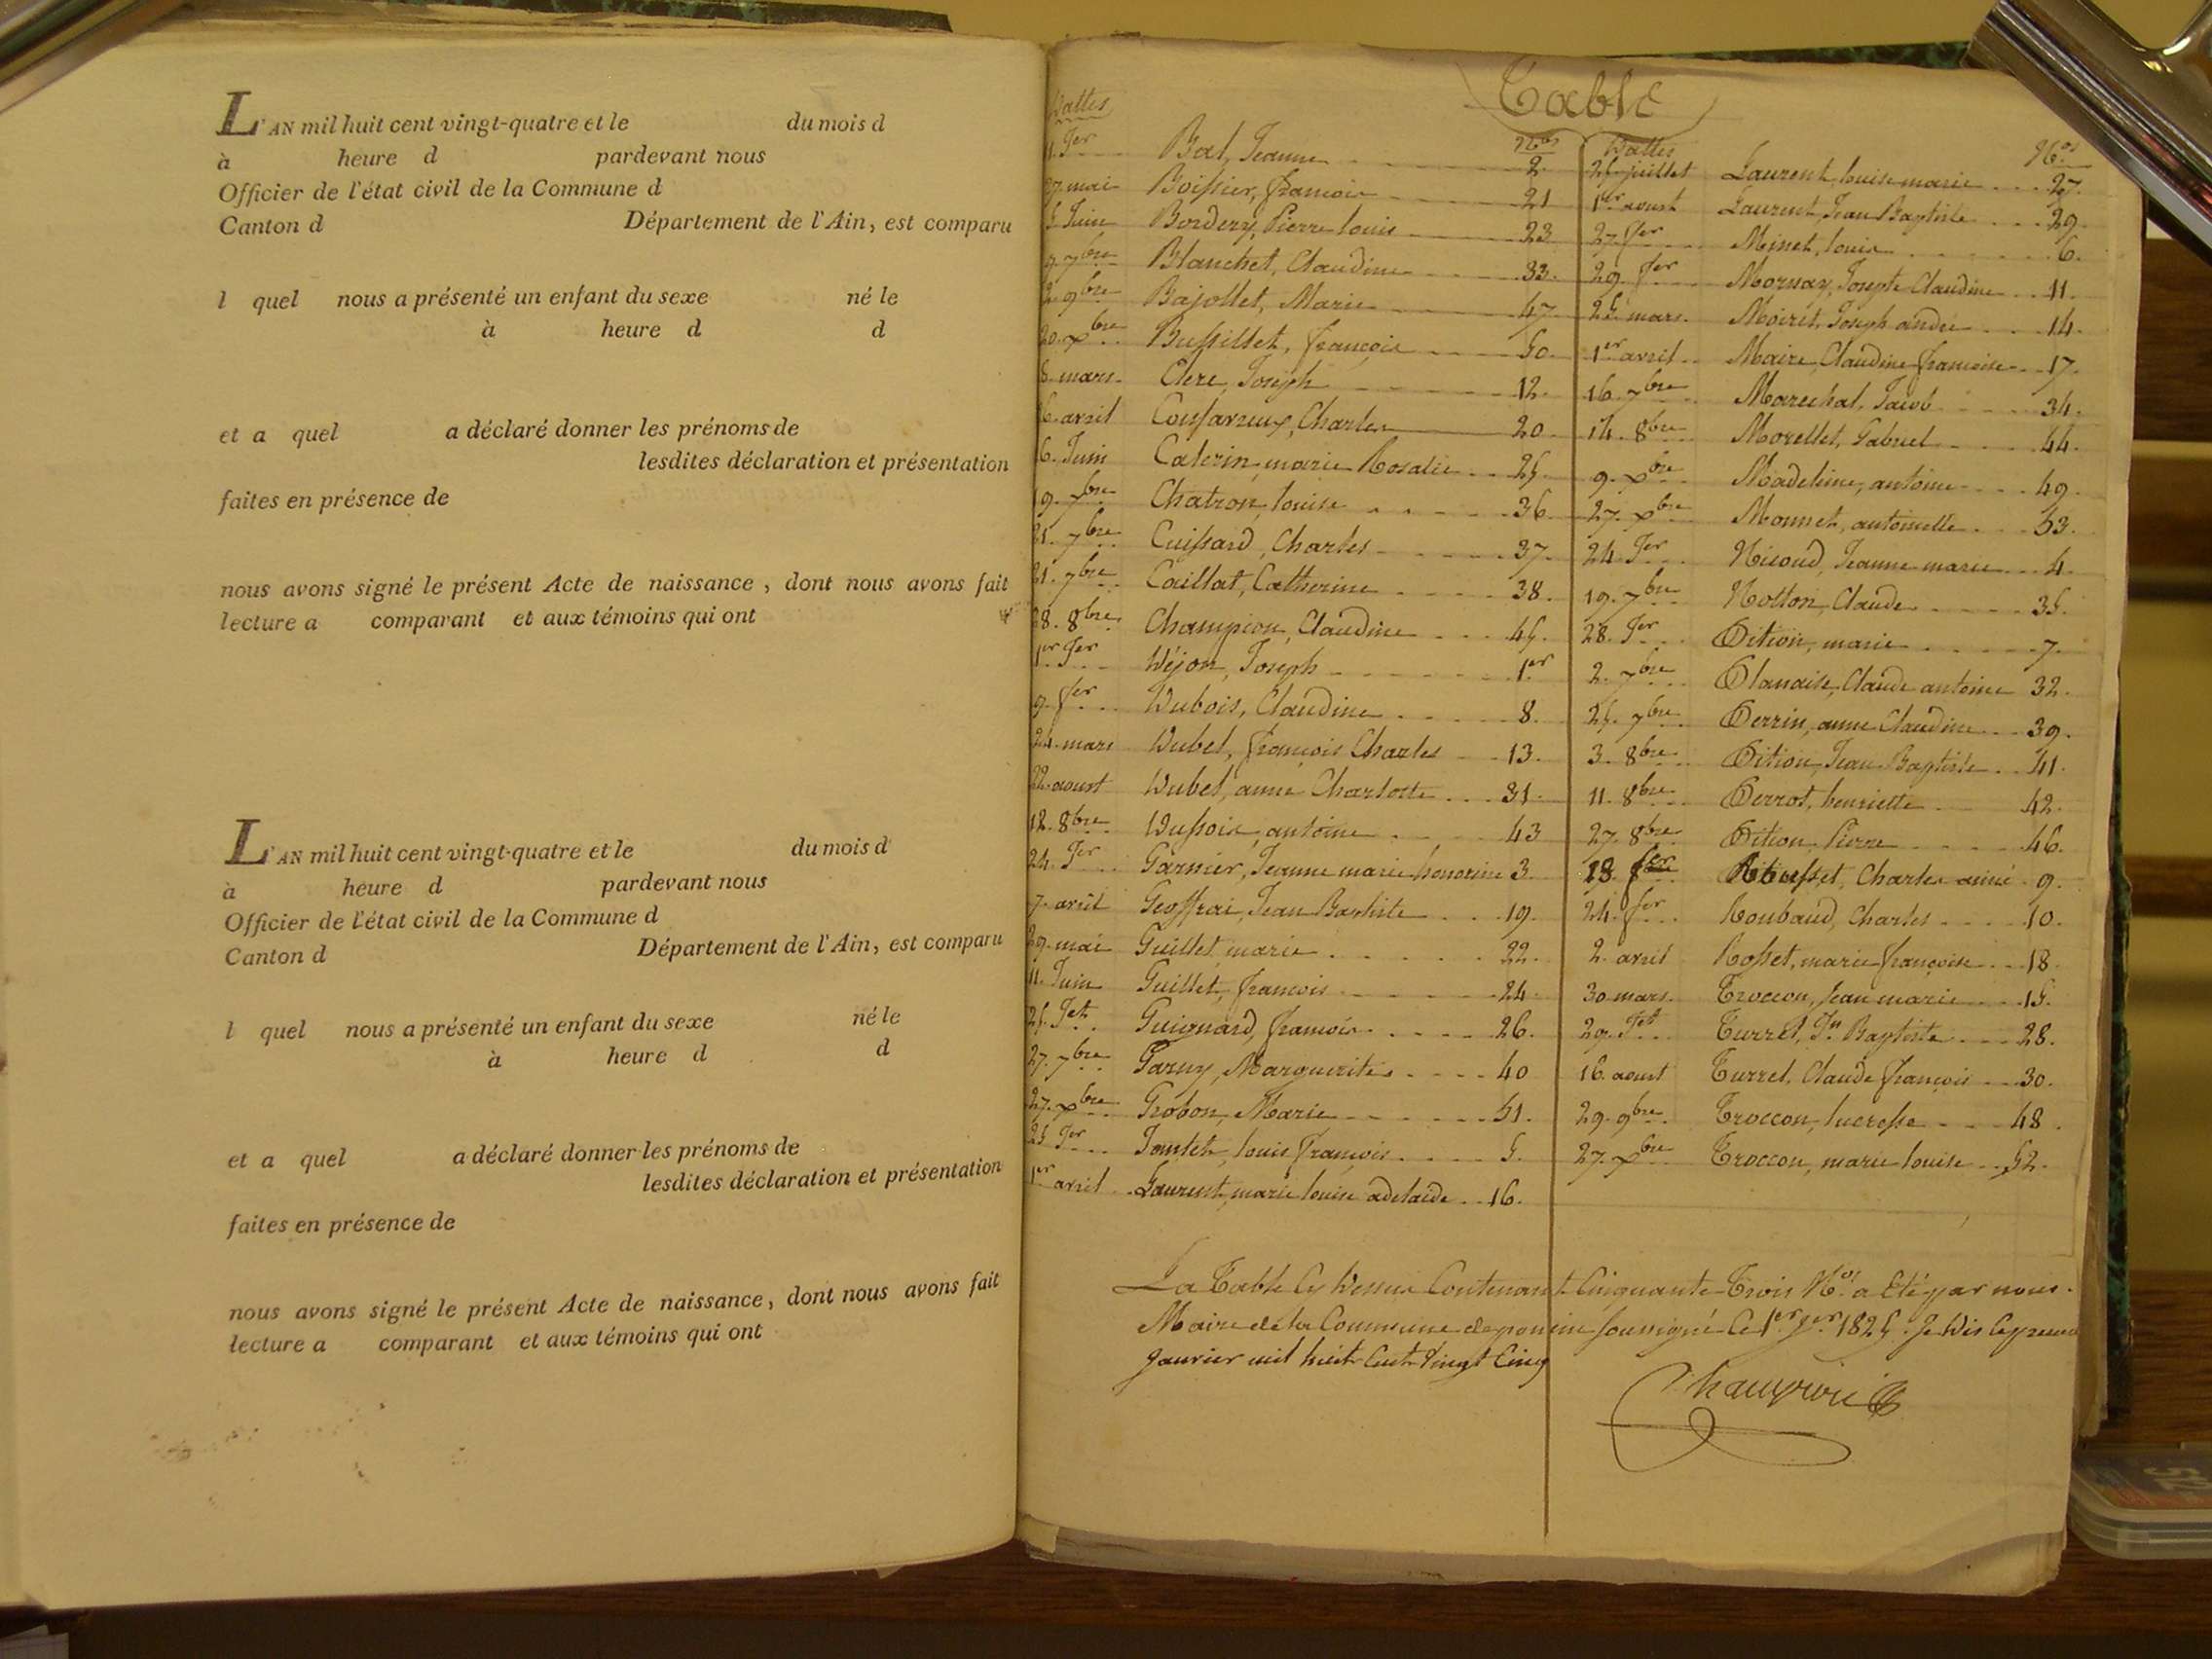 L'AN mil huit cent vingt-quatre et le du mois d
à heure d pardevant nous
Officier de l'état civil de la Commune d
Canton d Département de l'Ain, est comparu
l quel nous a présenté un enfant du sexe né le
à heure d d
et a quel a déclaré donner les prénoms de
lesdites déclaration et présentation
faites en présence de
nous avons signé le présent Acte de naissance, dont nous avons fait
lecture a comparant et aux témoins qui ont
L'AN mil huit cent vingt-quatre et le du mois d
à heure d pardevant nous
Officier de l'état civil de la Commune d
Canton d Département de l'Ain, est comparu
l quel nous a présenté un enfant du sexe né le
à heure d d
et a quel a déclaré donner les prénoms de
lesdites déclaration et présentation
faites en présence de
nous avons signé le présent Acte de naissance, dont nous avons fait
lecture a comparant et aux témoins qui ont
Table
Dattes Nos
11. Jer Bal, Jeanne 2.
27. mai Boissier, francois 21
5 Juin Bordery, Pierre louis 23
9. 7bre Blanchet, Claudine 33.
2. 9bre Bajollet, Marie 47.
20. xbre Bussillet, françois 50.
8. mars Clerc, Joseph 12.
16. avril Charles 20.
16. Juin Caterin, marie Rosalie 25.
19. 7bre Chatron, louise 36.
21. 7bre Cuissard, Charles 37.
21. 7bre Caillat, Catherine 38.
28. 8bre Champion, Claudine 45.
1er Jer Déjon, Joseph 1er
9. fer Dubois, Claudine 8.
24. mars Dubet, françois Charles 13.
22. aoust Dubet, anne Charlotte 31.
12. 8bre Dussoix, antoine 43
24. Jer Garnier, Jeanne marie honorine 3.
7. avril Geoffrai, Jean Baptiste 19.
29. mai Guillet, marie 22.
11. Juin Guillet, francois 24.
25. Jet Guignard, francois 26.
27. 7bre Garny, Marguerite 40
27. xbre Grobon, Marie 51.
25 Jer louis françois 5.
1er avril Laurent, marie louise adelaide 16.
Dattes Nos
25. juillet Laurent, louise marie 27.
1er aoust Laurent, Jean Baptiste 29.
27. fer Minet, louis 6.
29. fer Mornay, Josepte Claudine 11.
25. mars. Moiret, Joseph andré 14.
1er avril Maire, Claudine francoise 17.
16. 7bre Marechal, Jacob 34.
14. 8bre Morellet, Gabriel 44.
9. xbre Madeleine, antoine 49.
27. xbre Monnet, antoinette 53.
24. Jer Nicoud, Jeanne marie 4.
19. 7bre Notton, Claude 35.
28. Jer Pition, marie 7.
2. 7bre Planaise, Claude antoine 32.
25. 7bre Perrin, anne Claudine 39.
3. 8bre Pition, Jean Baptiste 41.
11. 8bre Perrot, henriette 42.
27. 8bre Pition, Pierre 46.
18. fer Charles aimé 9.
24. fer Roubaud, Charles 10.
2. avril Rosset, marie françoise 18.
30 mars. Troccon, Jean marie 15.
29. Jet Turrel, Jn Baptiste 28.
16. aoust Turrel, Claude françois 30.
29. 9bre Troccon, lucresse 48.
27. xbre Troccon, marie louise 52.
La Table Cy Dessus Contenant Cinquante Trois Nos a Eté par nous
Maire de la Commune de poncin soussigné Ce 1er Jer 1825. Je Dis Le premier
Janvier mil huit Cent Vingt Cinq